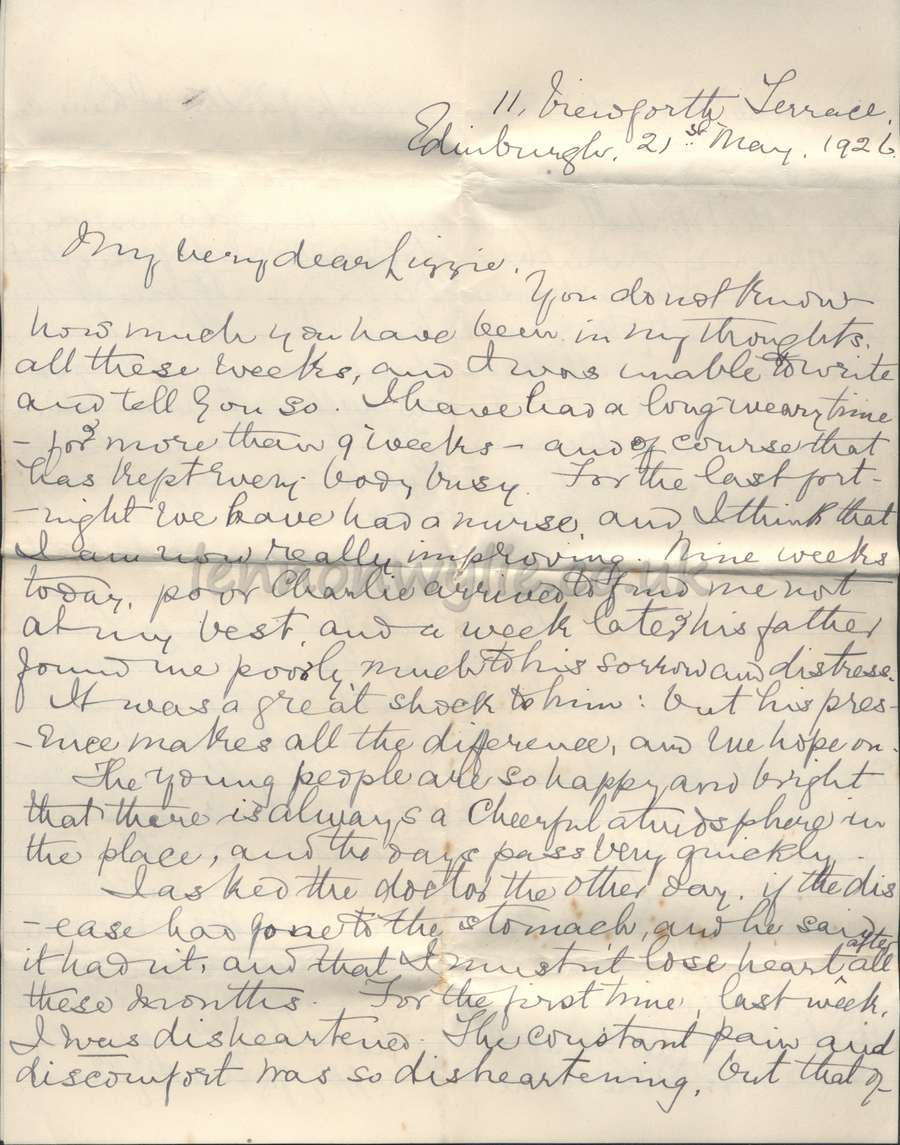 11, Viewforth Terrace,
Edinburgh. 21st May. 1926.
My very dear Lizzie,
You do not know
how much you have been in my thoughts.
all these weeks, and I was unable to write
and tell you so. I have had a long weary time
- for more than 9 weeks - and of course that
has kept every body busy. For the last fort-
-night we have had a nurse, and I think that
I am now really improving. Nine weeks
today, poor Charlie arrived to find me not
at my best, and a week later his father
found me poorly, much to his sorrow and distress.
It was a great shock to him: but his pres-
-ence makes all the difference, and we hope on.
The young people are so happy and bright
that there is always a cheerful atmosphere in
the place, and the days pass very quickly.
I asked the doctor the other day, if the dis
-ease had gone to the stomach, and he said
it hadn't, and that I mustnt lose heart after all
these months. For the first time, last week,
I was disheartened. The constant pain and
discomfort was so disheartening, but that of-
lennonwylie.co.uk